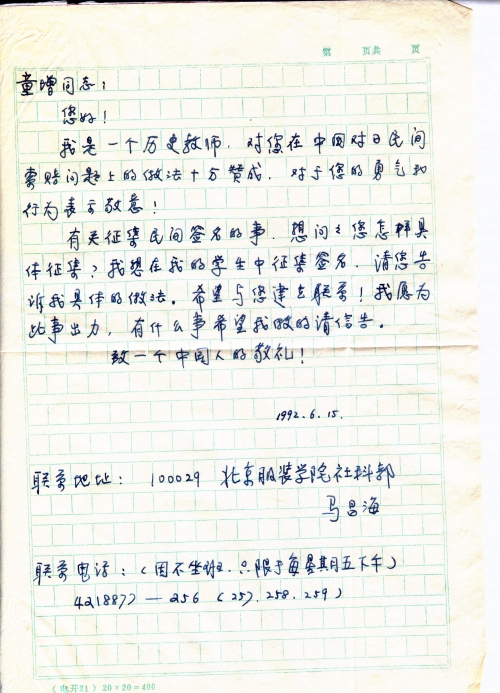 第 页共 页
童增同志：
您好！
我是一个历史教师，对您在中国对日民间
索赔问题上的做法十分赞成，对于您的勇气和
行为表示敬意！
有关征集民间签名的事，想问之您怎样具
体征集？我想在我的学生中征集签名，请您告
诉我具体的做法。希望与您建立联系！我愿为
此事出力，有什么事希望我做的请信告。
致一个中国人的敬礼！
1992.6.15.
联系地址：100029 北京服装学院社科部
马昌海
联系电话：（因不坐班，只限于每星期五下午）
4218877—256（257.258.259）
（电开21）20×20=400